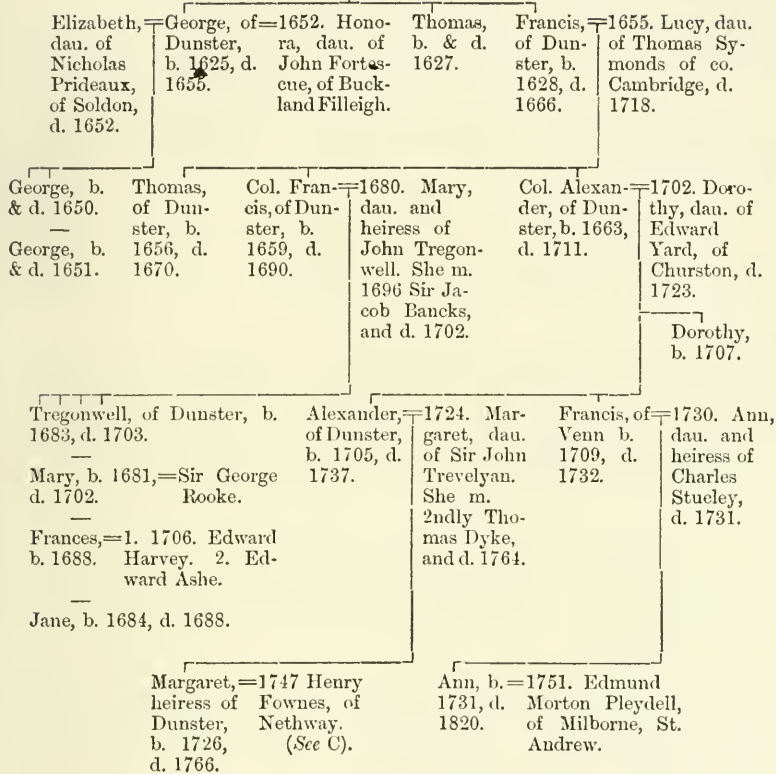 Elizabeth,
dau. of
Nicholas
Prideaux,
of Soldon,
d. 1652.
George, of
Dunster,
b. 1625, d.
1655.
1652. Hono-
ra, dau. of
John Fortes-
cue, of Buck-
land Filleigh.
Thomas,
b. & d.
1627.
Francis,
of Dun-
ster, b.
1628, d.
1666.
1655. Lucy, dau.
of Thomas Sy-
monds of co.
Cambridge, d.
1718.
George, b.
& d. 1650.
—
George, b.
& d. 1651.
Thomas,
of Dun-
ster, b.
1656, d.
1670.
Col. Fran-
cis, of Dun-
ster, b.
1659, d.
1690.
1680. Mary,
dau. and
heiress of
John Tregon-
well. She m.
1696 Sir Ja-
cob Bancks,
and d. 1702.
Col. Alexan-
der, of Dun-
ster, b. 1663,
d. 1711.
1702. Doro-
thy, dau. of
Edward
Yard, of
Churston, d.
1723.
Dorothy,
b. 1707.
Tregonwell, of Dunster, b.
1683, d. 1703.
—
Mary, b. 1681,=Sir George
d. 1702. Rooke.
—
Frances,=1. 1706. Edward
b. 1688. Harvey. 2. Ed-
ward Ashe.
—
Jane, b. 1684, d. 1688.
Alexander,
of Dunster,
b. 1705, d.
1737.
1724. Mar-
garet, dau.
of Sir John
Trevelyan.
She m.
2ndly Tho-
mas Dyke,
and d. 1764.
Francis, of
Venn b.
1709, d.
1732.
1730. Ann,
dau. and
heiress of
Charles
Stucley,
d. 1731.
Margaret,=1747 Henry
heiress of Fownes, of
Dunster, Nethway.
b. 1726, (See C).
d. 1766.
Ann, b.=1751. Edmund
1731, d. Morton Pleydell,
1820. of Milborne, St.
Andrew.